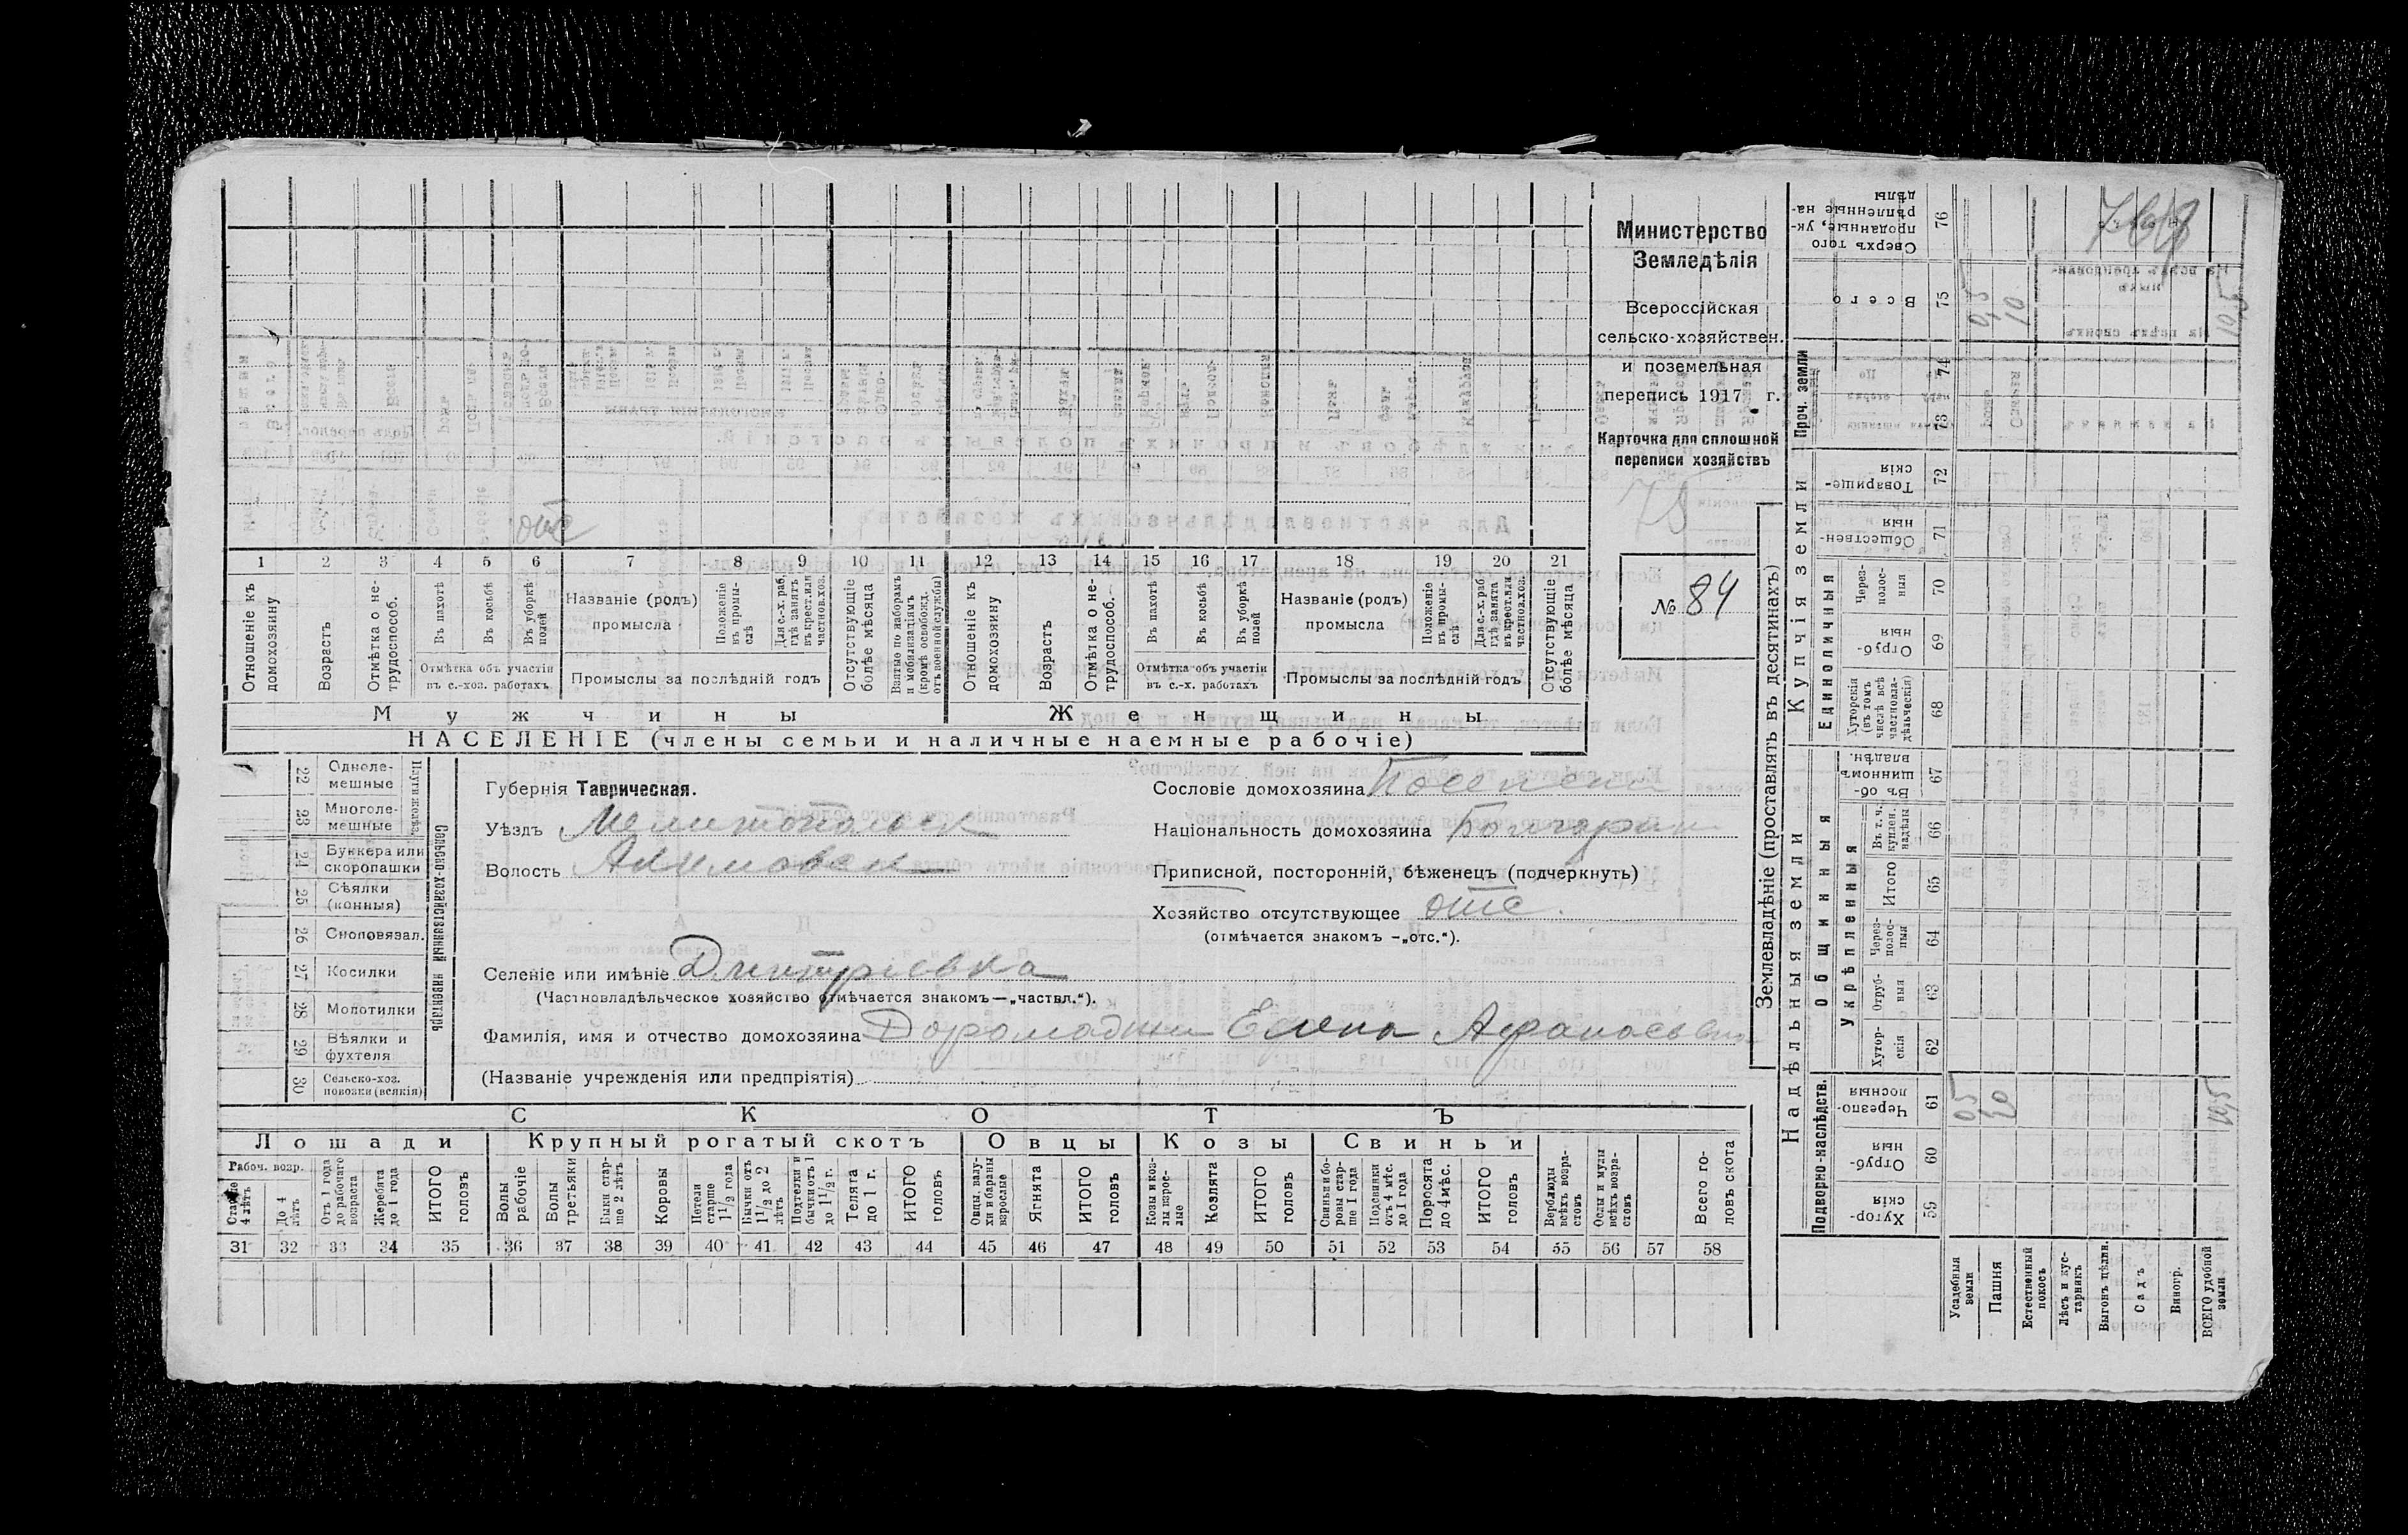 отс
1 2 3 4 5 6 7 8 9 10 11 12 13 14 15 16 17 18 19 20 21
Отношеніе къ домохозяину
Возрастъ
Отмѣтка о не-трудоспособ.
Въ пахотѣ
Въ косьбѣ
Въ уборкѣ полей
Отмѣтка объ участіи
въ с.-хоз. работахъ
Названіе (родъ)
промысла
Положеніе въ промы-слѣ
Для с.-х. раб. гдѣ занятъ въ крест. или частнов. хоз.
Промыслы за послѣдній годъ
Отсутствующіе болѣе мѣсяца
Взятые по наборамъ и мобилизаціямъ (кромѣ освобожд. отъ военной службы)
Отношеніе къ домохозяину
Возрастъ
Отмѣтка о не-трудоспособ.
Въ пахотѣ
Въ косьбѣ
Въ уборкѣ полей
Отмѣтка объ участіи
въ с.-х. работахъ
Названіе (родъ)
промысла
Положеніе въ промы-слѣ
Для с.-х. раб. гдѣ занята въ крест. или частнов. хоз.
Промыслы за послѣдній годъ
Отсутствующіе болѣе мѣсяца
Мужчины
Женщины
НАСЕЛЕНІЕ (члены семьи и наличные наемные рабочіе)
Министерство
Земледѣлія
Всероссійская
сельско-хозяйствен.
и поземельная
перепись 1917 г.
Карточка для сплошной
переписи хозяйствъ
№ 84
22 Одноле-мешные
23 Многоле-мешные
24 Буккера или скоропашки
25 Сѣялки (конныя)
26 Сноповязал.
27 Косилки
28 Молотилки
29 Вѣялки и фухтеля
30 Сельско-хоз. повозки (всякія)
Сельско-хозяйственный инвентарь
Губернія Таврическая.
Уѣздъ Мелитопольск
Волость Акимовск
Селеніе или имѣніе Дмитріевка
(Частновладѣльческое хозяйство отмѣчается знакомъ—„частвл.“).
Фамилія, имя и отчество домохозяина Елена Афанасьевна
(Названіе учрежденія или предпріятія)
Сословіе домохозяина Поселенн
Національность домохозяина Болгарин
Приписной, посторонній, бѣженецъ (подчеркнуть)
Хозяйство отсутствующее отс.
(отмѣчается знакомъ —„отс.“).
СКОТЪ
Лошади
Крупный рогатый скотъ
Овцы
Козы
Свиньи
Рабоч. возр.
Старше 4 лѣтъ
До 4 лѣтъ
Отъ 1 года до рабочаго возраста
Жеребята до 1 года
ИТОГО головъ
Волы рабочіе
Волы третьяки
Быки стар-ше 2 лѣтъ
Коровы
Нетели старше 1½ года
Бычки отъ 1½ до 2 лѣтъ
Подтелки и бычки отъ 1 до 1½ г.
Телята до 1 г.
ИТОГО головъ
Овцы, валу-хи и бараны взрослые
Ягнята
ИТОГО головъ
Козы и коз-лы взрос-лые
Козлята
ИТОГО головъ
Свиньи и бо-ровы стар-ше 1 года
Подсвинки отъ 4 мѣс. до 1 года
Поросята до 4 мѣс.
ИТОГО головъ
Верблюды всѣхъ возра-стовъ
Ослы и мулы всѣхъ возра-стовъ
Всего го-ловъ скота
31 32 33 34 35 36 37 38 39 40 41 42 43 44 45 46 47 48 49 50 51 52 53 54 55 56 57 58
Землевладѣніе (проставлять въ десятинахъ)
Надѣльныя земли
Купчія земли
Проч. земли
Подворно-наслѣдств.
Общинныя
Укрѣпленныя
Единоличныя
Хутор-скія 59
Отруб-ныя 60
Черезпо-лосныя 61
Хутор-скія 62
Отруб-ныя 63
Через-полос-ныя 64
Итого 65
Въ т. ч. куплен. надѣлы 66
Въ об-щинномъ владѣн. 67
Хуторскія (въ томъ числѣ всѣ частновла-дѣльческія) 68
Отруб-ныя 69
Через-полос-ныя 70
Обществен-ныя 71
Товарище-скія 72
73
74
Всего 75
Сверхъ того проданные, ук-рѣпленные на-дѣлы 76
Усадебныя земли 0,5 0,5
Пашня 10 10
Естественный покосъ
Лѣсъ и кус-тарникъ
Выгонъ цѣлин.
Садъ
Виногр.
ВСЕГО удобной земли 10,5 10,5